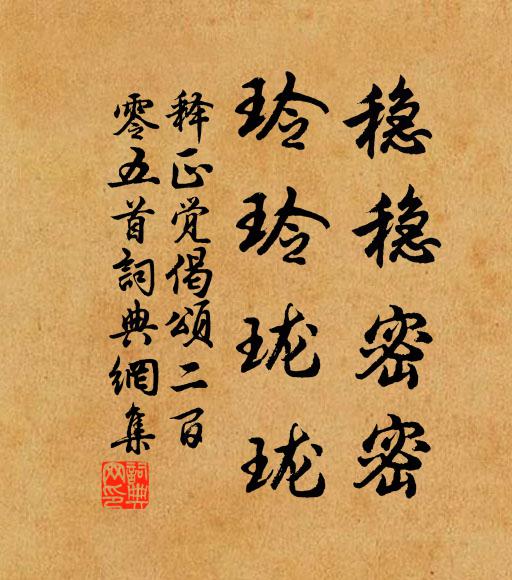 稳稳密密
玲玲珑珑
释正觉偈颂二百
零五首詞典網集
詞典網印